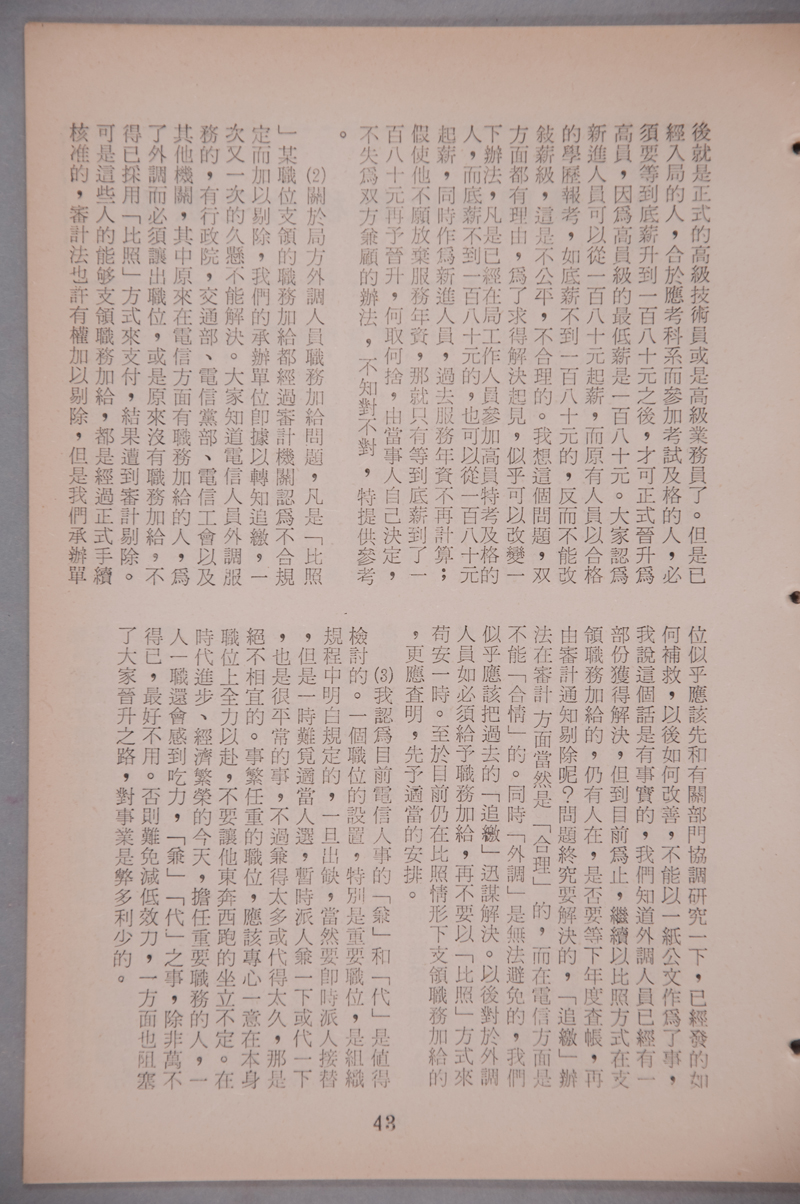 後就是正式的高級技術員或是高級業務員了。但是已
經入局的人，合於應考科系而參加考試及格的人，必
須要等到底薪升到一百八十元之後，才可正式晉升爲
高員，因爲高員級的最低薪是一百八十元。大家認爲
新進人員可以從一百八十元起薪，而原有人員以合格
的學歷報考，如底薪不到一百八十元的，反而不能改
敍薪級，這是不公平，不合理的。我想這個問題，双
方面都有理由，爲了求得解決起見，似乎可以改變一
下辦法，凡是已經在局工作人員參加高員特考及格的
人，而底薪不到一百八十元的，也可以從一百八十元
起薪，同時作爲新進人員，過去服務年資不再計算；
假使他不願放棄服務年資，那就只有等到底薪到了一
百八十元再予晉升，何取何捨，由當事人自己決定，
不失爲双方兼顧的辦法，不知對不對，特提供參考
。
⑵關於局方外調人員職務加給問題，凡是「比照
」某職位支領的職務加給都經過審計機關認爲不合規
定而加以剔除，我們的承辦單位卽據以轉知追繳，一
次又一次的久懸不能解決。大家知道電信人員外調服
務的，有行政院，交通部、電信黨部、電信工會以及
其他機關，其中原來在電信方面有職務加給的人，爲
了外調而必須讓出職位，或是原來沒有職務加給，不
得已採用「比照」方式來支付，結果遭到審計剔除。
可是這些人的能够支領職務加給，都是經過正式手續
核准的，審計法也許有權加以剔除，但是我們承辦單
位似乎應該先和有關部門協調研究一下，已經發的如
何補救，以後如何改善，不能以一紙公文作爲了事，
我說這個話是有事實的，我們知道外調人員已經有一
部份獲得解決，但到目前爲止，繼續以比照方式在支
領職務加給的，仍有人在，是否要等下年度查帳，再
由審計通知剔除呢？問題終究要解決的，「追繳」辦
法在審計方面當然是「合理」的，而在電信方面是
不能「合情」的。同時「外調」是無法避免的，我們
似乎應該把過去的「追繳」迅謀解決。以後對於外調
人員如必須給予職務加給，再不要以「比照」方式來
苟安一時。至於目前仍在比照情形下支領職務加給的
，更應查明，先予適當的安排。
⑶我認爲目前電信人事的「兼」和「代」是値得
檢討的。一個職位的設置，特別是重要職位，是組織
規程中明白規定的，一旦出缺，當然要卽時派人接替
，但是一時難覓適當人選，暫時派人兼一下或代一下
，也是很平常的事，不過兼得太多或代得太久，那是
絕不相宜的。事繁任重的職位，應該專心一意在本身
職位上全力以赴，不要讓他東奔西跑的坐立不定。在
時代進步、經濟繁榮的今天，擔任重要職務的人，一
人一職還會感到吃力，「兼」「代」之事，除非萬不
得已，最好不用。否則難免減低效力，一方面也阻塞
了大家晉升之路，對事業是弊多利少的。
43